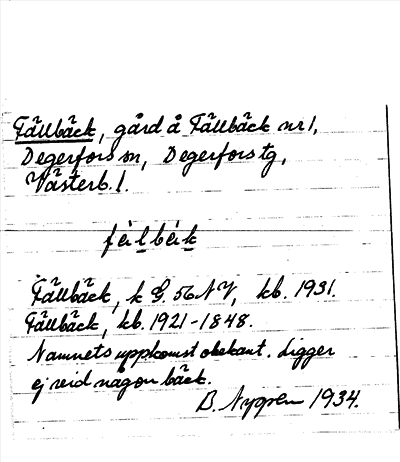 Fällbäck, gård å Fällbäck nr 1,
Degerfors sn, Degerfors tg,
Västerb. l.
Fällbäck, k G. 56 NV, kb. 1931.
Fällbäck, kb. 1921-1848.
Namnets uppkomst obekant. Ligger
ej vid någon bäck.
B. Nygren 1934.